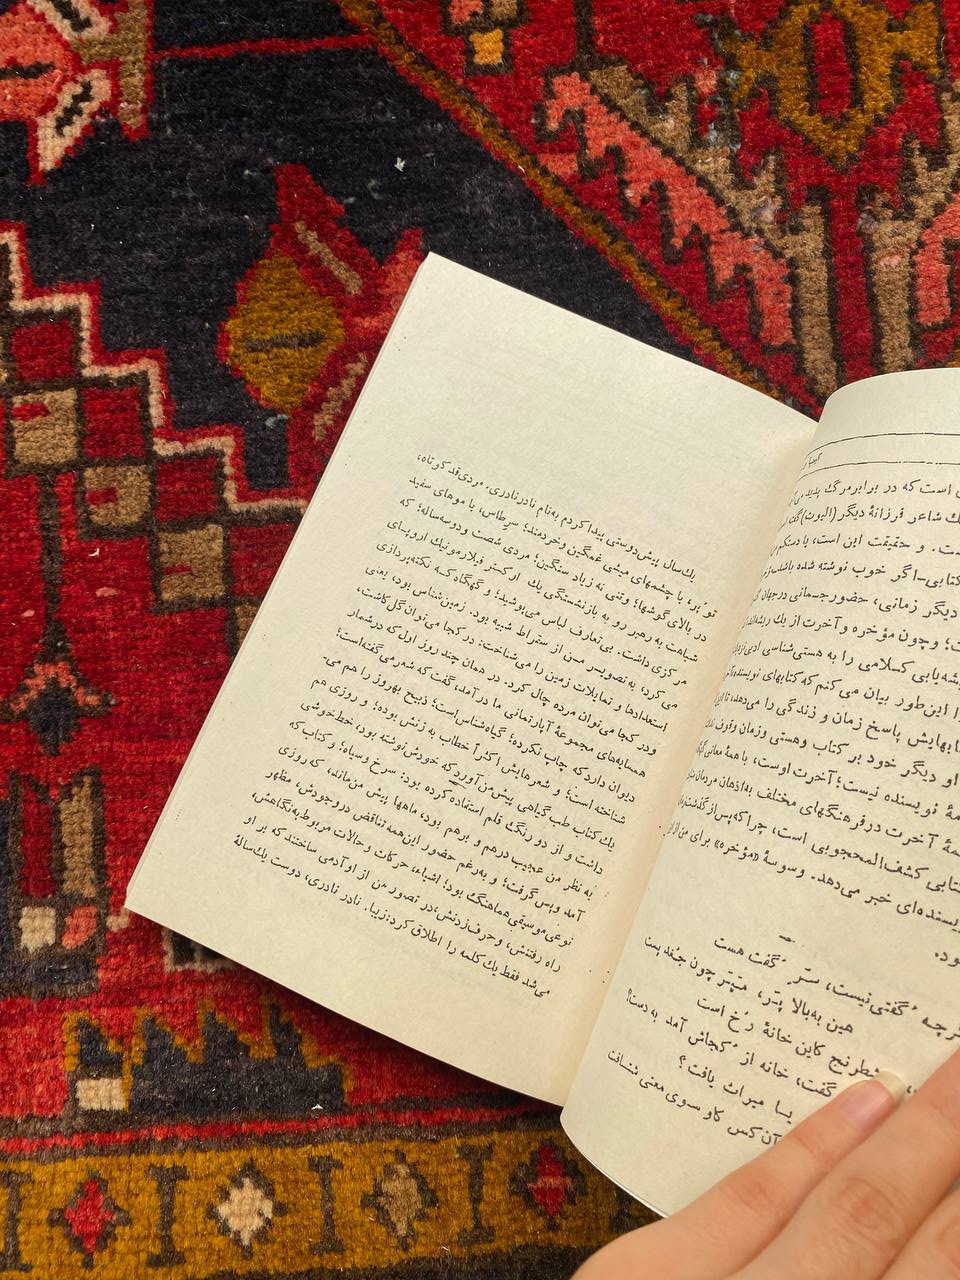 یك‌سال پیش‌دوستی پیدا کردم به‌نام نادر نادری. مردی قد کوتاه،
توپُر، با چشمهای میشی غمگین و خردمند؛ سرطاس، با موهای سفید
در بالای گوشها؛ وتنی نه زیاد سنگین؛ مردی شصت و دوسه‌ساله؛ که
شباهت به رهبر رو به بازنشستگی یك ارکستر فیلارمونیك اروپای
مرکزی داشت. بی‌تعارف لباس می‌پوشید؛ و گهگاه که نکته‌پردازی
می کرد، به تصویر من از سقراط شبیه بود. زمین شناس بود، یعنی
استعدادها و تمایلات زمین را می‌شناخت: در کجا می‌توان گل کاشت،
ودر کجا می‌توان مرده چال کرد. در همان چند روز اول که درشمار
همسایه‌های مجموعهٔ آپارتمانی ما در آمد، گفت که شعر می‌گفته‌است؛
دیوان دارد که چاپ نکرده؛ گیاه‌شناس است؛ ذبیح بهروز را هم می‌-
شناخته است؛ و شعرهایش اکثراً خطاب به زنش بوده؛ و روزی هم
یك کتاب طب گیاهی پیش من آورد که خودش نوشته بود، خط خوشی
داشت و از دو رنگ قلم استفاده کرده بود: سرخ و سیاه؛ و کتاب که
به نظر من عجیب درهم و برهم بود، ماهها پیش من ماند، که روزی
آمد و پس گرفت؛ و به‌رغم حضور این همه تناقض در وجودش، مظهر
نوعی موسیقی هماهنگ بود؛ اشیاء، حرکات و حالات مربوط به نگاهش،
راه رفتنش، و حرف زدنش، در تصور من از او آدمی ساختند که بر او
می‌شد فقط یك کلمه را اطلاق کرد: زیبا. نادر نادری، دوست یك‌سالهٔ
است که در برابر مرگ پدید می
شاعر فرزانهٔ دیگر (الیوت) گفته
و حقیقت این است، یا دستکم
کتابی-اگر خوب نوشته شده باشد
دیگر زمانی، حضور جسمانی درجهان
و چون مؤخره و آخرت از یك ریشه‌اند
کلامی را به هستی‌شناسی ادبی
را این‌طور بیان می کنم که کتابهای نویسنده
پاسخ زمان و زندگی را می‌دهد،
او دیگر خود بر کتاب وهستی وزمان وقوف
نویسنده نیست؛ آخرت اوست، با همهٔ معانی
آخرت در فرهنگهای مختلف به‌اذهان مردمان
کتابی کشف‌المحجوبی است، چرا که پس از گذشت
خبر می‌دهد. وسوسهٔ «مؤخره» برای من از
گرچه گفتنی نیست، سرّ گفت هست
هین به‌بالا پر، مپر چون جغد پست
شطرنج کاین خانهٔ رُخ است
گفت، خانه از کجاش آمد به دست؟
یا میراث یافت؟
آن کس کاو سوی معنی شتافت